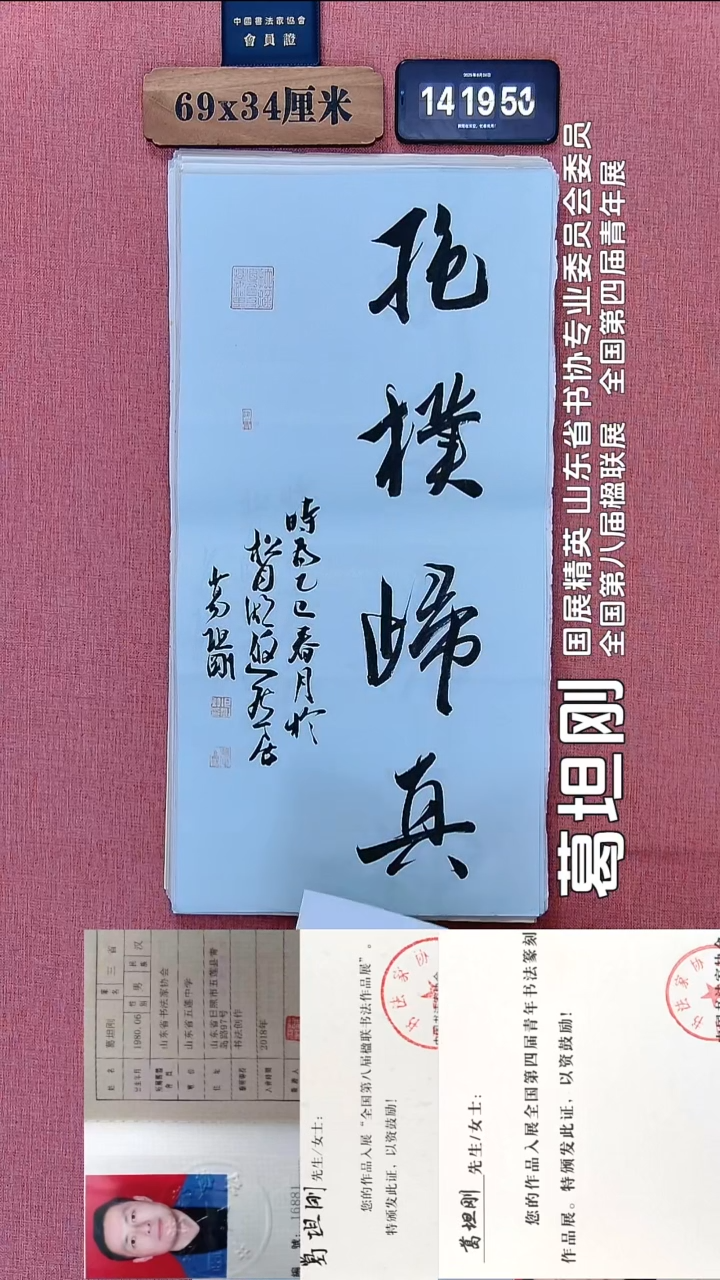 中國書法家協會
會員證
69x34厘米
14 19 50
抱樸歸真
時為乙巳春月於
松月湖畔
葛坦剛
葛坦刚
国展精英 山东省书协专业委员会委员
全国第八届楹联展 全国第四届青年展
葛坦刚
1980.06
男
汉
山东省书法家协会
山东省五莲中学
山东省日照市五莲县青
岛路97号
书法创作
2018年
編 號: 16881
葛坦刚 先生/女士:
您的作品入展“全国第八届楹联书法作品展”。
特颁发此证，以资鼓励！
葛坦刚 先生/女士:
您的作品入展全国第四届青年书法篆刻
作品展。特颁发此证，以资鼓励！